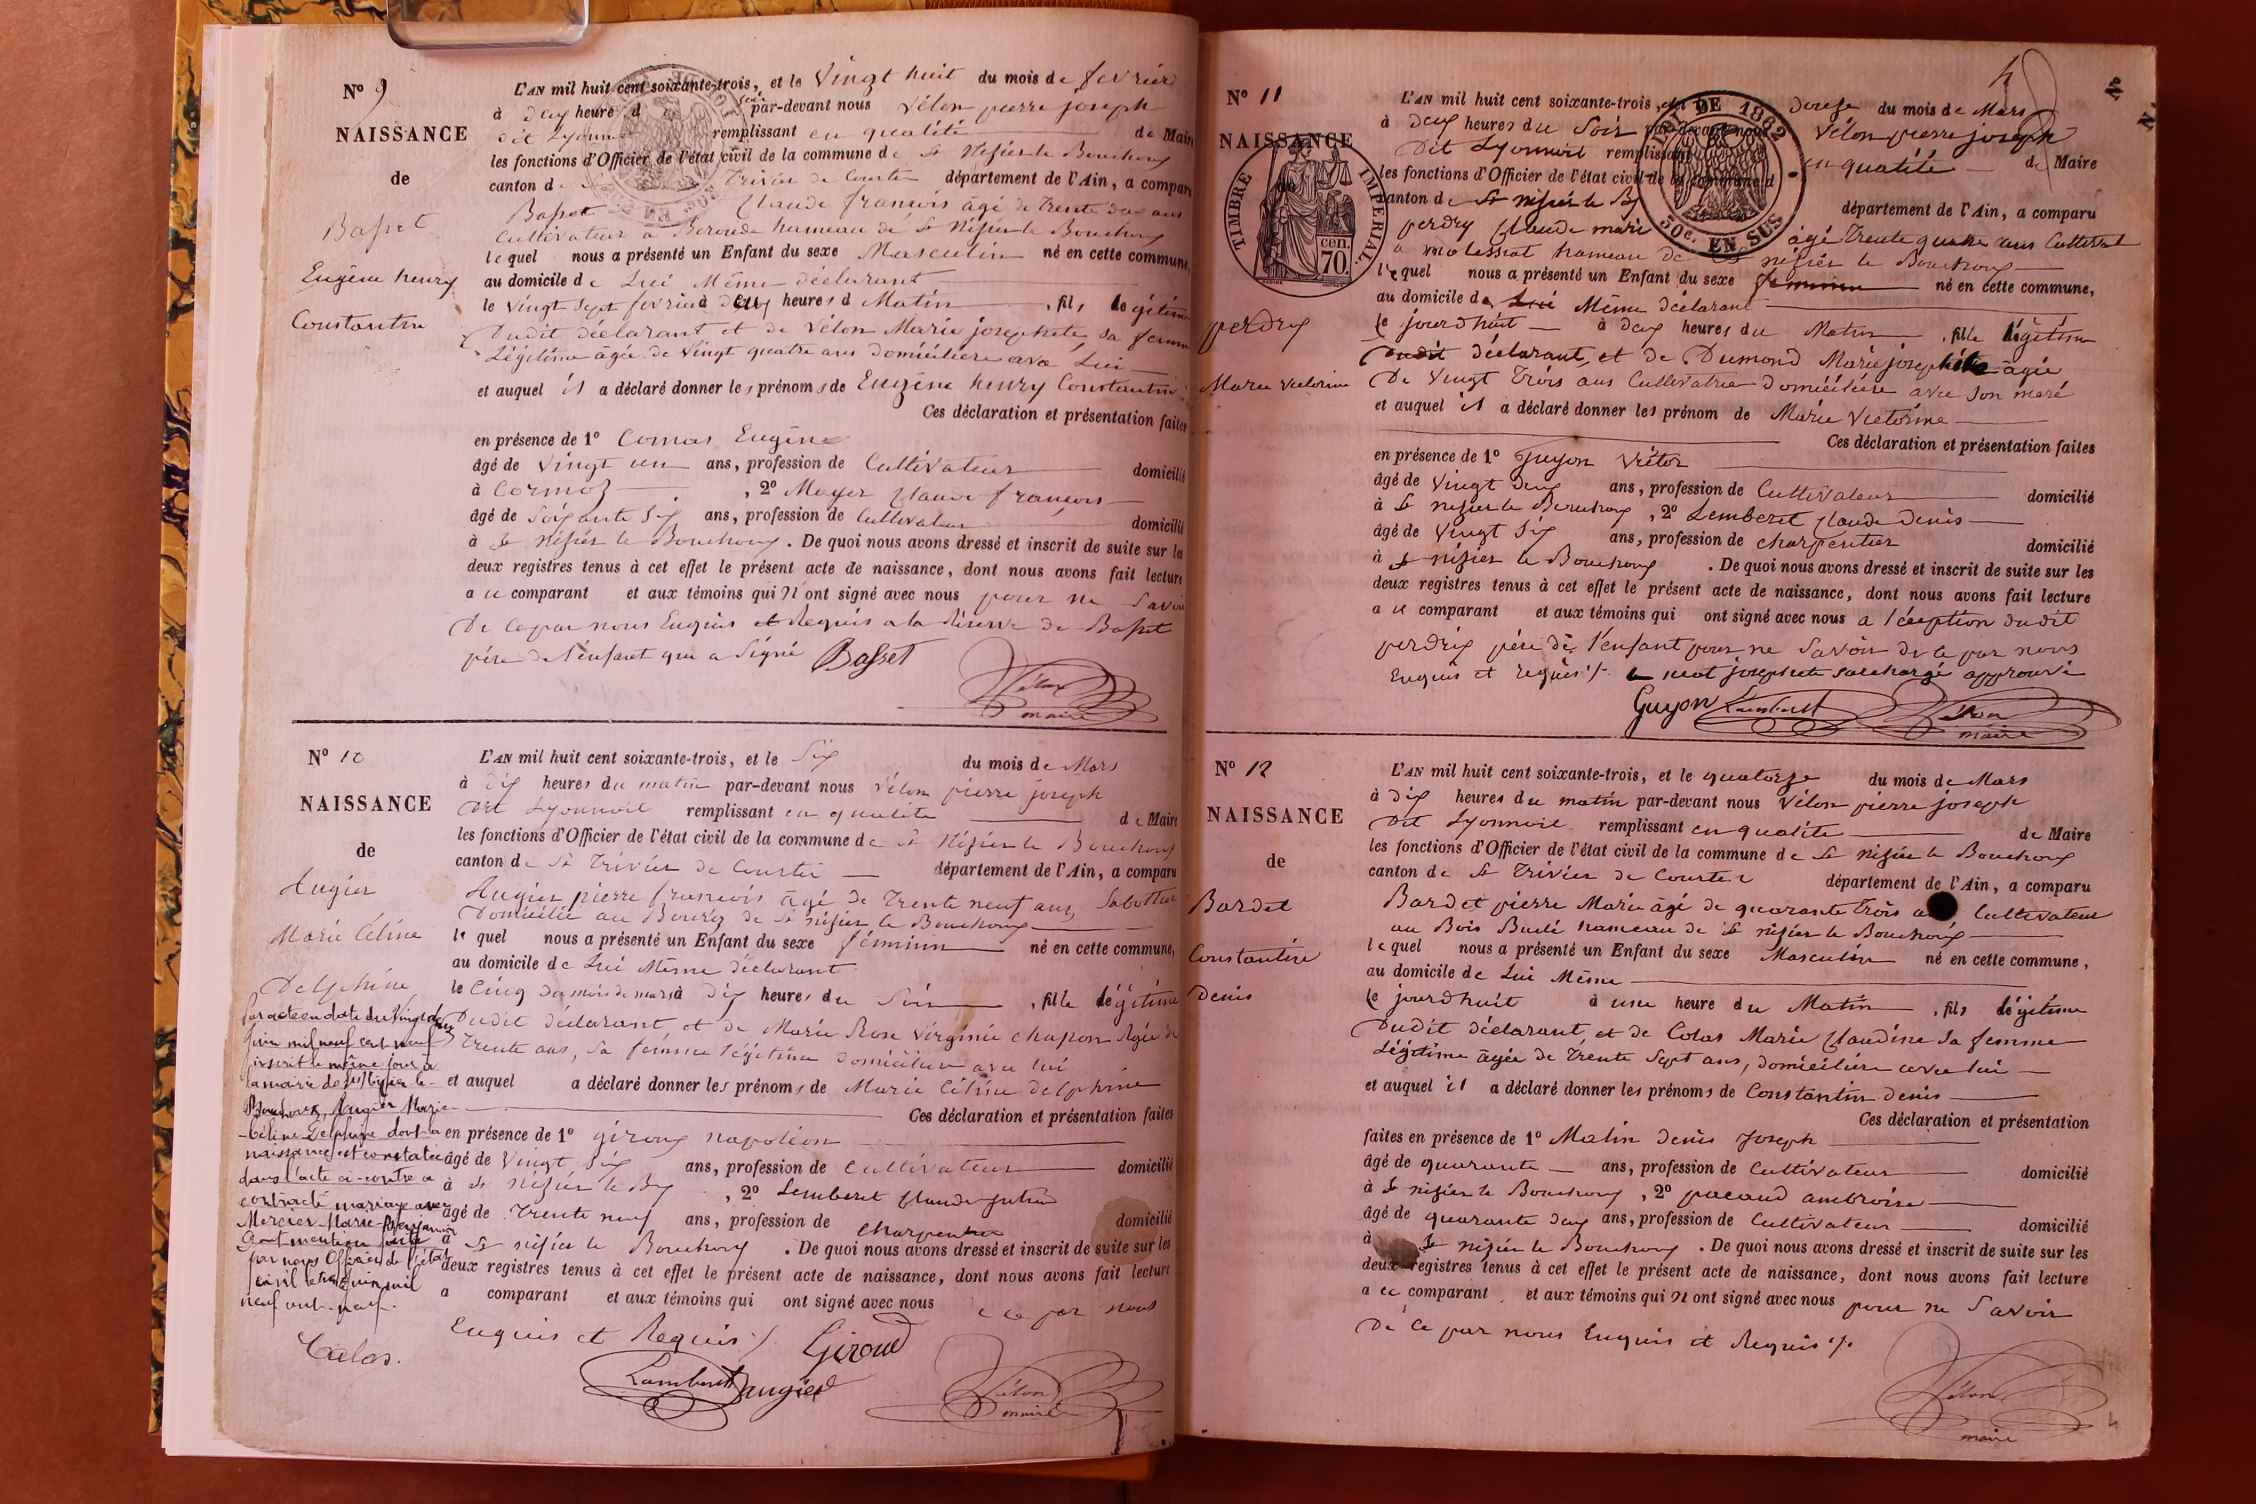 N° 9
NAISSANCE
de
Basset
Eugène henry
Constantin
L'AN mil huit cent soixante-trois, et le Vingt huit du mois de fevrier
à deux heure d soir par-devant nous Vélon pierre joseph
dit Lyonnois remplissant en qualité de Maire
les fonctions d'Officier de l'état civil de la commune de St Nisier le Bouchoux
canton de Trivier de Courtes département de l'Ain, a comparu
Basset Claude francois âgé de trente six ans
Cultivateur a hameau de St Nisier le Bouchoux
lequel nous a présenté un Enfant du sexe Masculin né en cette commune,
au domicile de Lui Même déclarant
le vingt sept fevrier à deux heures d Matin, fils légitime
Dudit déclarant et de Vélon Marie josephete, sa femme
Légitime âgée de Vingt quatre ans domiciliere avec Lui
et auquel il a déclaré donner les prénoms de Eugène henry Constantin
Ces déclaration et présentation faites
en présence de 1° Comas Eugène
âgé de vingt un ans, profession de Cultivateur domicilié
à Cormoz, 2° Mayer Claude francois
âgé de soixante six ans, profession de Cultivateur domicilié
à St Nisier le Bouchoux. De quoi nous avons dressé et inscrit de suite sur les
deux registres tenus à cet effet le présent acte de naissance, dont nous avons fait lecture
a ce comparant et aux témoins qui n'ont signé avec nous pour ne savoir
De ce par nous Enquis et Requis a la Réserve de Basset
père de l'enfant qui a signé Basset
Vélon
maire
N° 10
NAISSANCE
de
Augier
Marie Céline
Delphine
Par acte en date du vingt deux
juin mil neuf cent neuf
inscrit le même jour à
la mairie de St Nizier le
Bouchoux, Augier Marie
Céline Delphine dont la
naissance est constatée
dans l'acte ci-contre a
contracté mariage avec
Mercier Marie-Benjamin
Dont mention faite
par nous Officier de l'état
civil le juin mil
neuf cent neuf.
L'AN mil huit cent soixante-trois, et le Six du mois de Mars
à dix heures du matin par-devant nous Vélon pierre joseph
dit Lyonnois remplissant en qualité de Maire
les fonctions d'Officier de l'état civil de la commune de St Nisier le Bouchoux
canton de St Trivier de Courtes département de l'Ain, a comparu
Augier pierre francois âgé de Trente neuf ans, Sabottier
Domicilié au Bourg de St nisier le Bouchoux
lequel nous a présenté un Enfant du sexe féminin né en cette commune,
au domicile de Lui Même déclarant
le Cinq du mois de mars à dix heures du Soir, fille légitime
Dudit déclarant, et de Marie Rose Virginie chapon Agée de
Trente ans, sa femme légitime domiciliere avec lui
et auquel a déclaré donner les prénoms de Marie Céline delphine
Ces déclaration et présentation faites
en présence de 1° giroux napoléon
âgé de Vingt six ans, profession de Cultivateur domicilié
à St nisier le Bx, 2° Lemberet Claude
âgé de Trente neuf ans, profession de Charpentier domicilié
à St nisier le Bouchoux. De quoi nous avons dressé et inscrit de suite sur les
deux registres tenus à cet effet le présent acte de naissance, dont nous avons fait lecture
a comparant et aux témoins qui ont signé avec nous de ce par nous
Enquis et Requis ./. Giroud
Lamberet augier
Vélon
maire
4
N° 11
NAISSANCE
TIMBRE IMPERIAL
cen.
70.
perdrix
Marie Victorine
LOI DE 1862
50c. EN SUS
L'AN mil huit cent soixante-trois, et le douze du mois de Mars
à deux heures du Soir par-devant nous Vélon pierre joseph
Dit Lyonnois remplissant en qualité de Maire
les fonctions d'Officier de l'état civil de la commune d
canton de St nisier le Bx département de l'Ain, a comparu
perdrix Claude marie âgé Trente quatre ans Cultivat
a molessiat hameau de St nisier le Bouchoux
lequel nous a présenté un Enfant du sexe féminin né en cette commune,
au domicile de Lui Même déclarant
le jourdhuit à deux heures du Matin, fille légitime
Dudit déclarant, et de Dumond Marie josephete âgée
De Vingt Trois ans Cultivatrice domiciliére avec son maré
et auquel il a déclaré donner les prénom de Marie Victorine
Ces déclaration et présentation faites
en présence de 1° Guyon Victor
âgé de Vingt deux ans, profession de Cultivateur domicilié
à St nisier le Bouchoux, 2° Lemberet Claude Denis
âgé de Vingt Six ans, profession de charpentier domicilié
à St nisier le Bouchoux. De quoi nous avons dressé et inscrit de suite sur les
deux registres tenus à cet effet le présent acte de naissance, dont nous avons fait lecture
a ce comparant et aux témoins qui ont signé avec nous a l'éxeption dudit
perdrix père de l'enfant pour ne Savoir de ce par nous
Enquis et requis ./. le mot josephete surchargé approuvé
Guyon Lamberet Vélon
maire
N° 12
NAISSANCE
de
Bardet
Constantin
Denis
L'AN mil huit cent soixante-trois, et le quatorze du mois de Mars
à dix heures du matin par-devant nous Vélon pierre joseph
Dit Lyonnois remplissant en qualité de Maire
les fonctions d'Officier de l'état civil de la commune de St nisier le Bouchoux
canton de St Trivier de Courtes département de l'Ain, a comparu
Bardet pierre Marie âgé de quarante trois ans Cultivateur
au Bois hameau de St nisier le Bouchoux
lequel nous a présenté un Enfant du sexe Masculin né en cette commune,
au domicile de Lui Même
le jourdhuit à une heure du Matin, fils légitime
Dudit déclarant, et de Colas Marie Claudine sa femme
Légitime âgée de Trente Sept ans, domiciliére avec lui
et auquel il a déclaré donner les prénoms de Constantin denis
Ces déclaration et présentation
faites en présence de 1° Matin denis Joseph
âgé de quarante ans, profession de Cultivateur domicilié
à St nisier le Bouchoux, 2° pacaud ambroise
âgé de quarante deux ans, profession de Cultivateur domicilié
à St nisier le Bouchoux. De quoi nous avons dressé et inscrit de suite sur les
deux registres tenus à cet effet le présent acte de naissance, dont nous avons fait lecture
a ce comparant et aux témoins qui n'ont signé avec nous pour ne Savoir
De ce par nous Enquis et Requis ./.
Vélon
maire